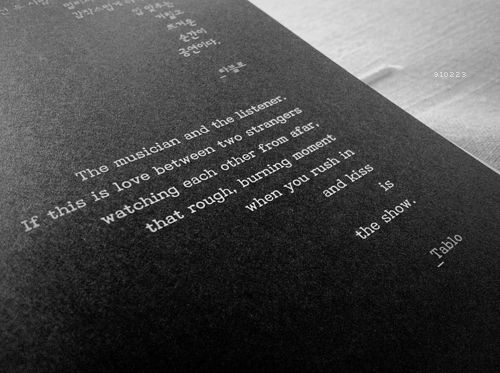 갑작스럽게
뜨거운
순간이
공연이다.
_타블로
910223
The musician and the listener.
If this is love between two strangers
watching each other from afar,
that rough, burning moment
when you rush in
and kiss
is
the show.
_Tablo